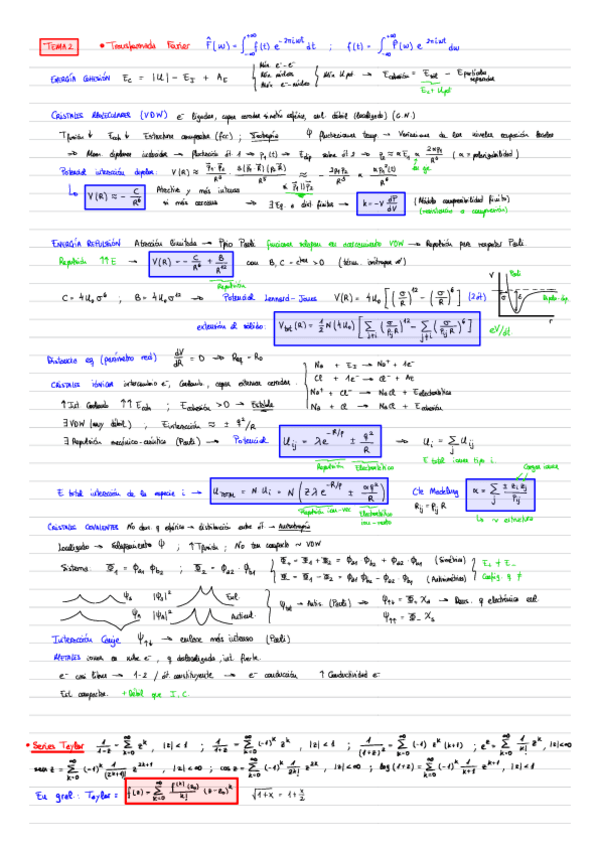 TEMA 2 • Transformada Fourier F̂(w) = ∫_{-∞}^{+∞} f(t) e^{-2πiwt} dt ; f(t) = ∫_{-∞}^{+∞} F̂(w) e^{2πiwt} dw
ENERGÍA COHESIÓN E_c = |U| - E_I + A_E
Min e⁻-e⁻
Min núcleos
Min e⁻-núcleos
Min U_pot → E_cohesión = E_sol - E_partículas separadas
E_c + U_pot
CRISTALES MOLECULARES (VDW) e⁻ ligados, capas cerradas simetría esférica, int. débil (localizado) (G.N)
T_fusión ↓ E_coh ↓ Estructura compacta (fcc) ; Isotropía Ψ fluctuaciones temp → Variaciones de los niveles ocupación
Potencial interacción dipolar:
V(R) ≈ - C/R⁶ Atractivo y más intenso si más cercanos → ∃ Eq. a dist finitas → k = -V dP/dV (Módulo compresibilidad finito) (resistencia a compresión)
ENERGÍA REPULSIÓN Atracción limitada → Ppio Pauli
Repulsión ↑↑ E → V(R) = - C/R⁶ + B/R¹² con B, C = ctes > 0
Repulsión
C = 4U₀σ⁶ ; B = 4U₀σ¹² → Potencial Lennard-Jones V(R) = 4U₀[(σ/R)¹² - (σ/R)⁶] (2át)
V Pauli
r
eV/át
extensión al sólido: V_tot(R) = ½ N (4U₀) [Σ_{j≠i} (σ/P_ij R)¹² - Σ_{j≠i} (σ/P_ij R)⁶]
Distancia eq (parámetro red) dV/dR = 0 → R_eq = R₀
CRISTALES IÓNICOS intercambio e⁻, Coulomb, capas externas cerradas.
Na + E_I → Na⁺ + 1e⁻
Cl + 1e⁻ → Cl⁻ + A_E
Na⁺ + Cl⁻ → NaCl + E_electrostática
Na + Cl → NaCl + E_cohesión
↑ Int Coulomb ↑↑ E_coh ; E_cohesión > 0 → Estable
∃ VDW (muy débil) ; E_interacción ≈ ± q²/R
∃ Repulsión mecánico-cuántica (Pauli) → Potencial U_ij = λe^{-R/ρ} ± q²/R → U_i = Σ_j U_ij
Repulsión Electrostático E total iones tipo i.
E total interacción de la especie i → U_TOTAL = N U_i = N (zλe^{-R/ρ} ± αq²/R) Cte Madelung R_ij = P_ij R α = Σ_j ± z_i z_j / P_ij
Repulsión ion-vec Electrostático ion-resto
~ estructura
CRISTALES COVALENTES No dens. q esférica → distribución entre át → Anisotropía
Localizado → Solapamiento Ψ ; ↑ T_fusión ; No tan compacto ~ VDW
Sistema: Φ₁ = Φ_a1 Φ_b2 ; Φ₂ = Φ_a2 · Φ_b1
Φ₊ = Φ₁ + Φ₂ = Φ_a1 Φ_b2 + Φ_a2 · Φ_b1 (Simétrica)
Φ₋ = Φ₁ - Φ₂ = Φ_a1 Φ_b2 - Φ_a2 Φ_b1 (Antisimétrica)
E₊ ≠ E₋
Ψ_s |Φ_s|² Enl.
Ψ_A |Φ_A|² Antienl.
Ψ_tot → Antis. (Pauli) → Ψ_↑↓ = Φ₊ χ_A → Dens. q electrónica enl.
Ψ_↑↑ = Φ₋ χ_s
Interacción Canje Ψ_↑↓ → enlace más intenso (Pauli)
METALES iones en nube e⁻, q deslocalizada, int. fuerte.
e⁻ casi libres → 1-2 / át. constituyente → e⁻ conducción ↑ Conductividad e⁻
Est compactas. + Débil que I, C.
• Series Taylor 1/(1-z) = Σ_{k=0}^∞ z^k, |z| < 1 ; 1/(1+z) = Σ_{k=0}^∞ (-1)^k z^k, |z| < 1 ; 1/(1+z)² = Σ_{k=0}^∞ (-1)^k z^k (k+1) ; e^z = Σ_{k=0}^∞ 1/k! z^k, |z| < ∞
sen z = Σ_{k=0}^∞ (-1)^k 1/(2k+1)! z^{2k+1}, |z| < ∞ ; cos z = Σ_{k=0}^∞ (-1)^k 1/2k! z^{2k}, |z| < ∞ ; log(1+z) = Σ_{k=0}^∞ (-1)^k 1/(k+1) z^{k+1}, |z| < 1
En gral: Taylor = f(z) = Σ_{k=0}^∞ f^{(k)}(z₀)/k! (z-z₀)^k √(1+x) = 1 + x/2